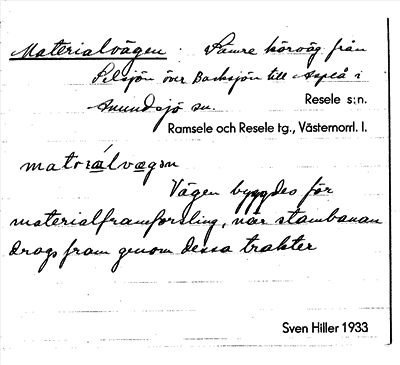 Materialvägen. Samre körväg från
Selsjön över Backsjön till Aspeå i
Anundsjö sn. Resele s:n.
Ramsele och Resele tg., Västernorrl. l.
materialvägen
Vägen byggdes för
materialframforsling, när stambanan
drogs fram genom dessa trakter
Sven Hiller 1933